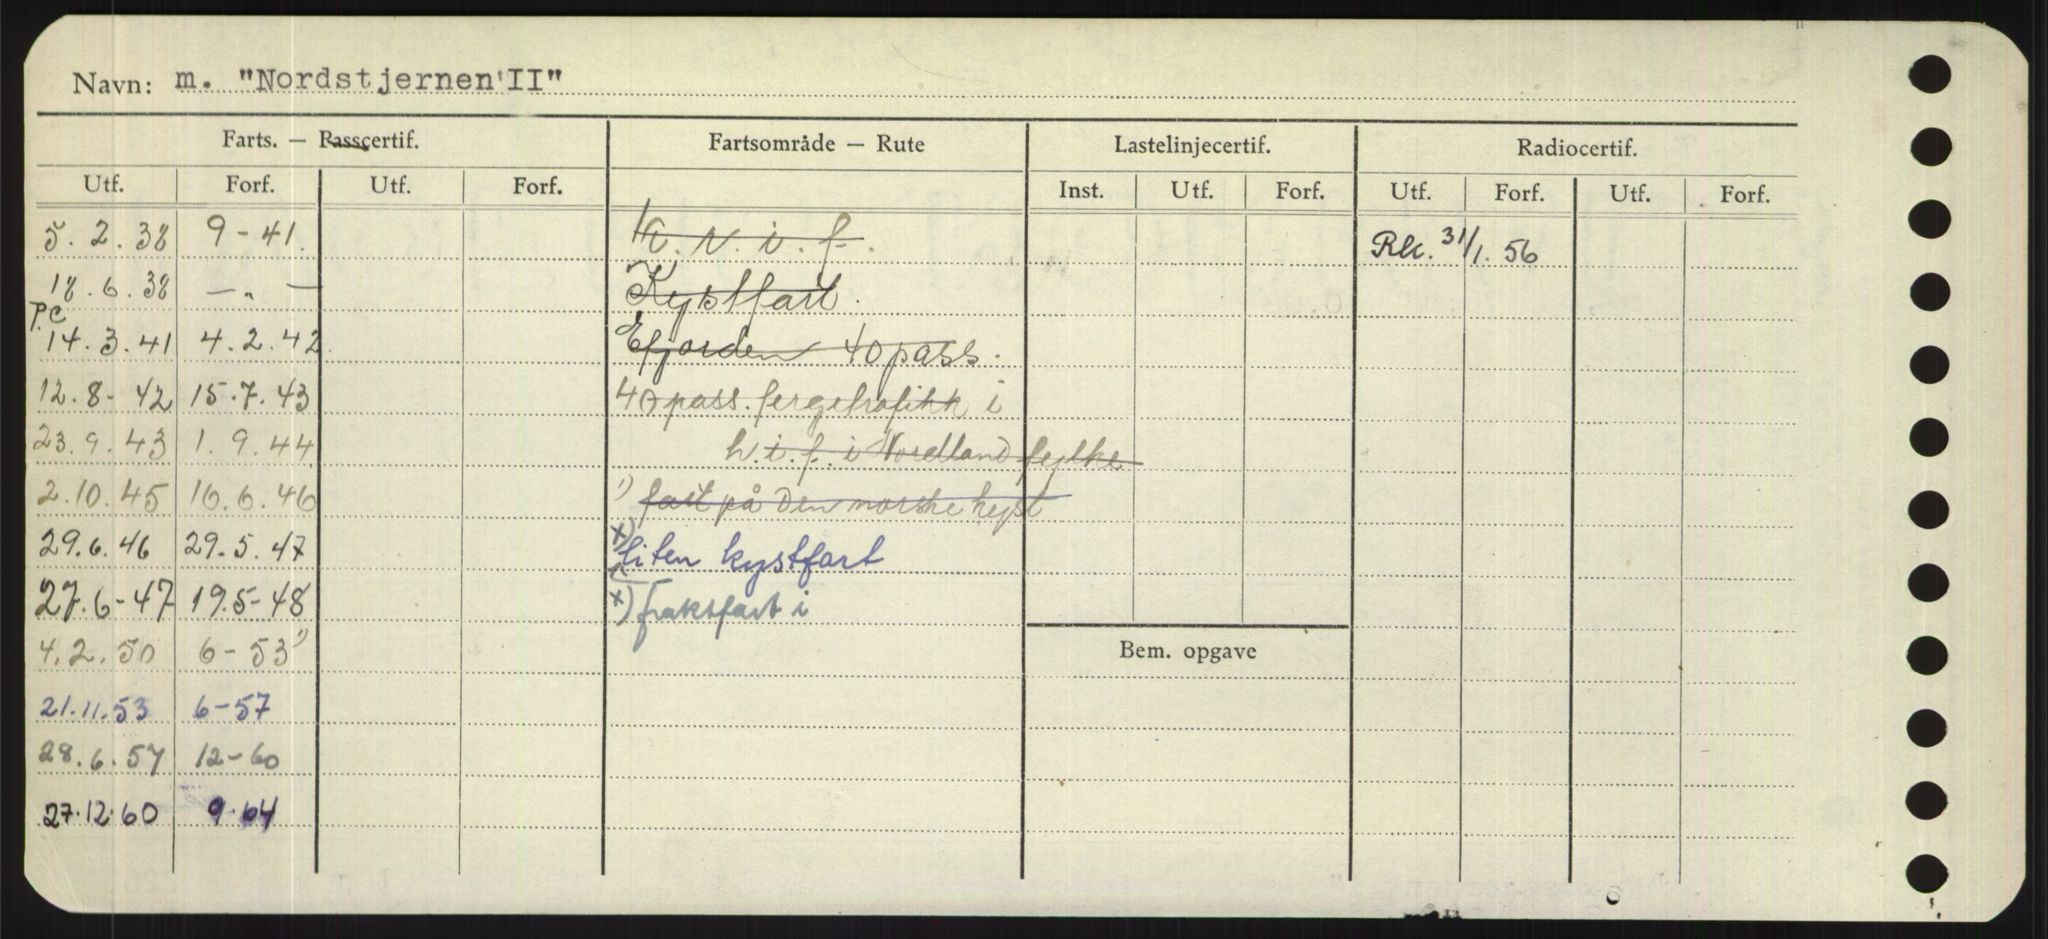 Navn: m. "Nordstjernen'II"
Farts. — Passcertif. Fartsområde — Rute Lastelinjecertif. Radiocertif.
Utf. Forf. Utf. Forf. Inst. Utf. Forf. Utf. Forf. Utf. Forf.
5.2.38 9-41. K.N.i.f. Rk. 31/1.56
18.6.38 —„— Kystfart.
P.C
14.3.41 4.2.42 Efjorden 40 pass.
12.8-42 15.7.43 40 pass. fergetrafikk i
23.9.43 1.9.44 h.i.f. i Nordland fylke
2.10.45 16.6.46 1) fart på den norske kyst
29.6.46 29.5.47 x) liten kystfart
27.6-47 19.5-48 x) fraktfart i
4.2.50 6-53 1)
Bem. opgave
21.11.53 6-57
28.6.57 12-60
27.12.60 9.64